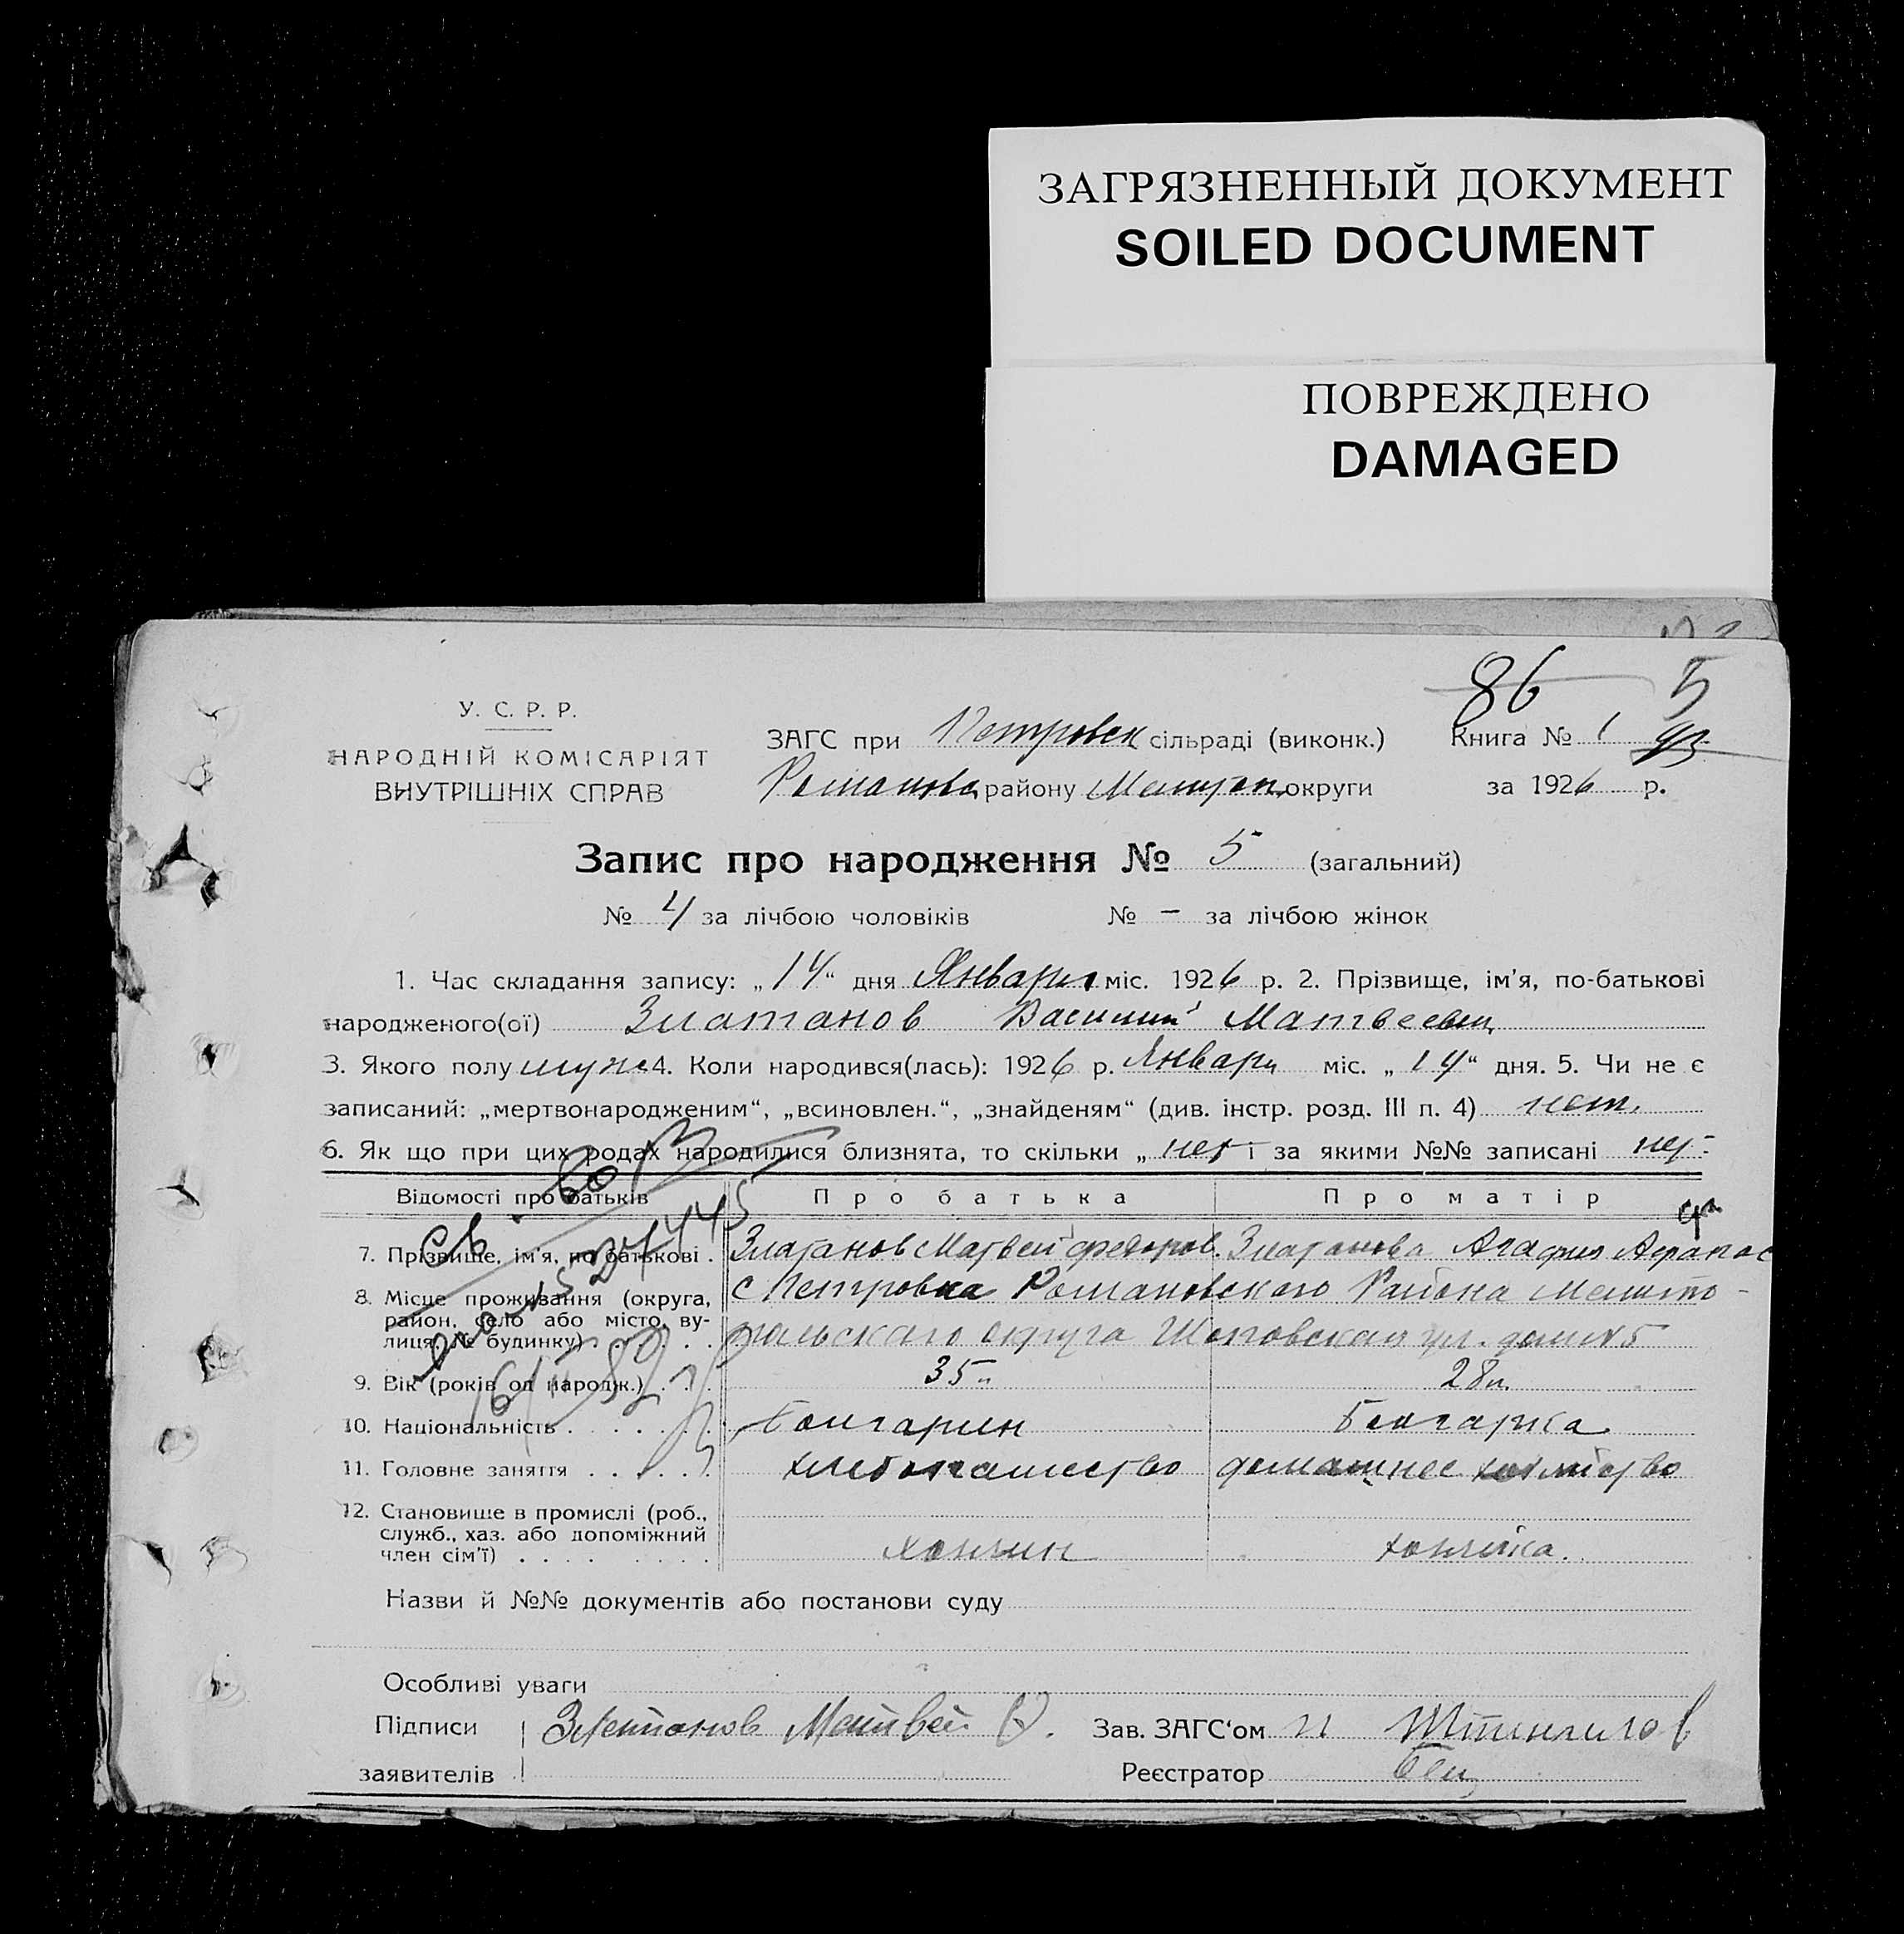 ЗАГРЯЗНЕННЫЙ ДОКУМЕНТ
SOILED DOCUMENT
ПОВРЕЖДЕНО
DAMAGED
86 5
У. С. Р. Р.
НАРОДНІЙ КОМІСАРІЯТ
ВНУТРІШНІХ СПРАВ
ЗАГС при Петровск сільраді (виконк.) Книга № 1
Романовс району Мелитоп округи за 1926 р.
Запис про народження № 5 (загальний)
№ 4 за лічбою чоловіків № – за лічбою жінок
1. Час складання запису: „14“ дня Января міс. 1926 р. 2. Прізвище, ім'я, по-батькові
народженого(ої) Златанов Василий Матвеевич
3. Якого полу муж 4. Коли народився(лась): 1926 р. Января міс. „14“ дня. 5. Чи не є
записаний: „мертвонародженим“, „всиновлен.“, „знайденям“ (див. інстр. розд. III п. 4) нет.
6. Як що при цих родах народилися близнята, то скільки „нет і за якими №№ записані нет
Відомості про батьків Про батька Про матір
7. Прізвище, ім'я, по батькові . Златанов Матвей Федоров. Златанова Агафия Афанас
8. Місце проживання (округа, с Петровка Романовского Района Мелито-
район, село або місто, ву-
лиця, № будинку) польскаго округа Шоповская ул. дом №5
9. Вік (років од народж.) 35 28
10. Національність Болгарин Болгарка
11. Головне заняття хлебопашество домашнее хозяйство
12. Становище в промислі (роб.,
служб., хаз. або допоміжний
член сім'ї) хозяин хозяйка.
Назви й №№ документів або постанови суду
Особливі уваги
Підписи Златанов Матвей Ф. Зав. ЗАГС‘ом
заявителів Реєстратор